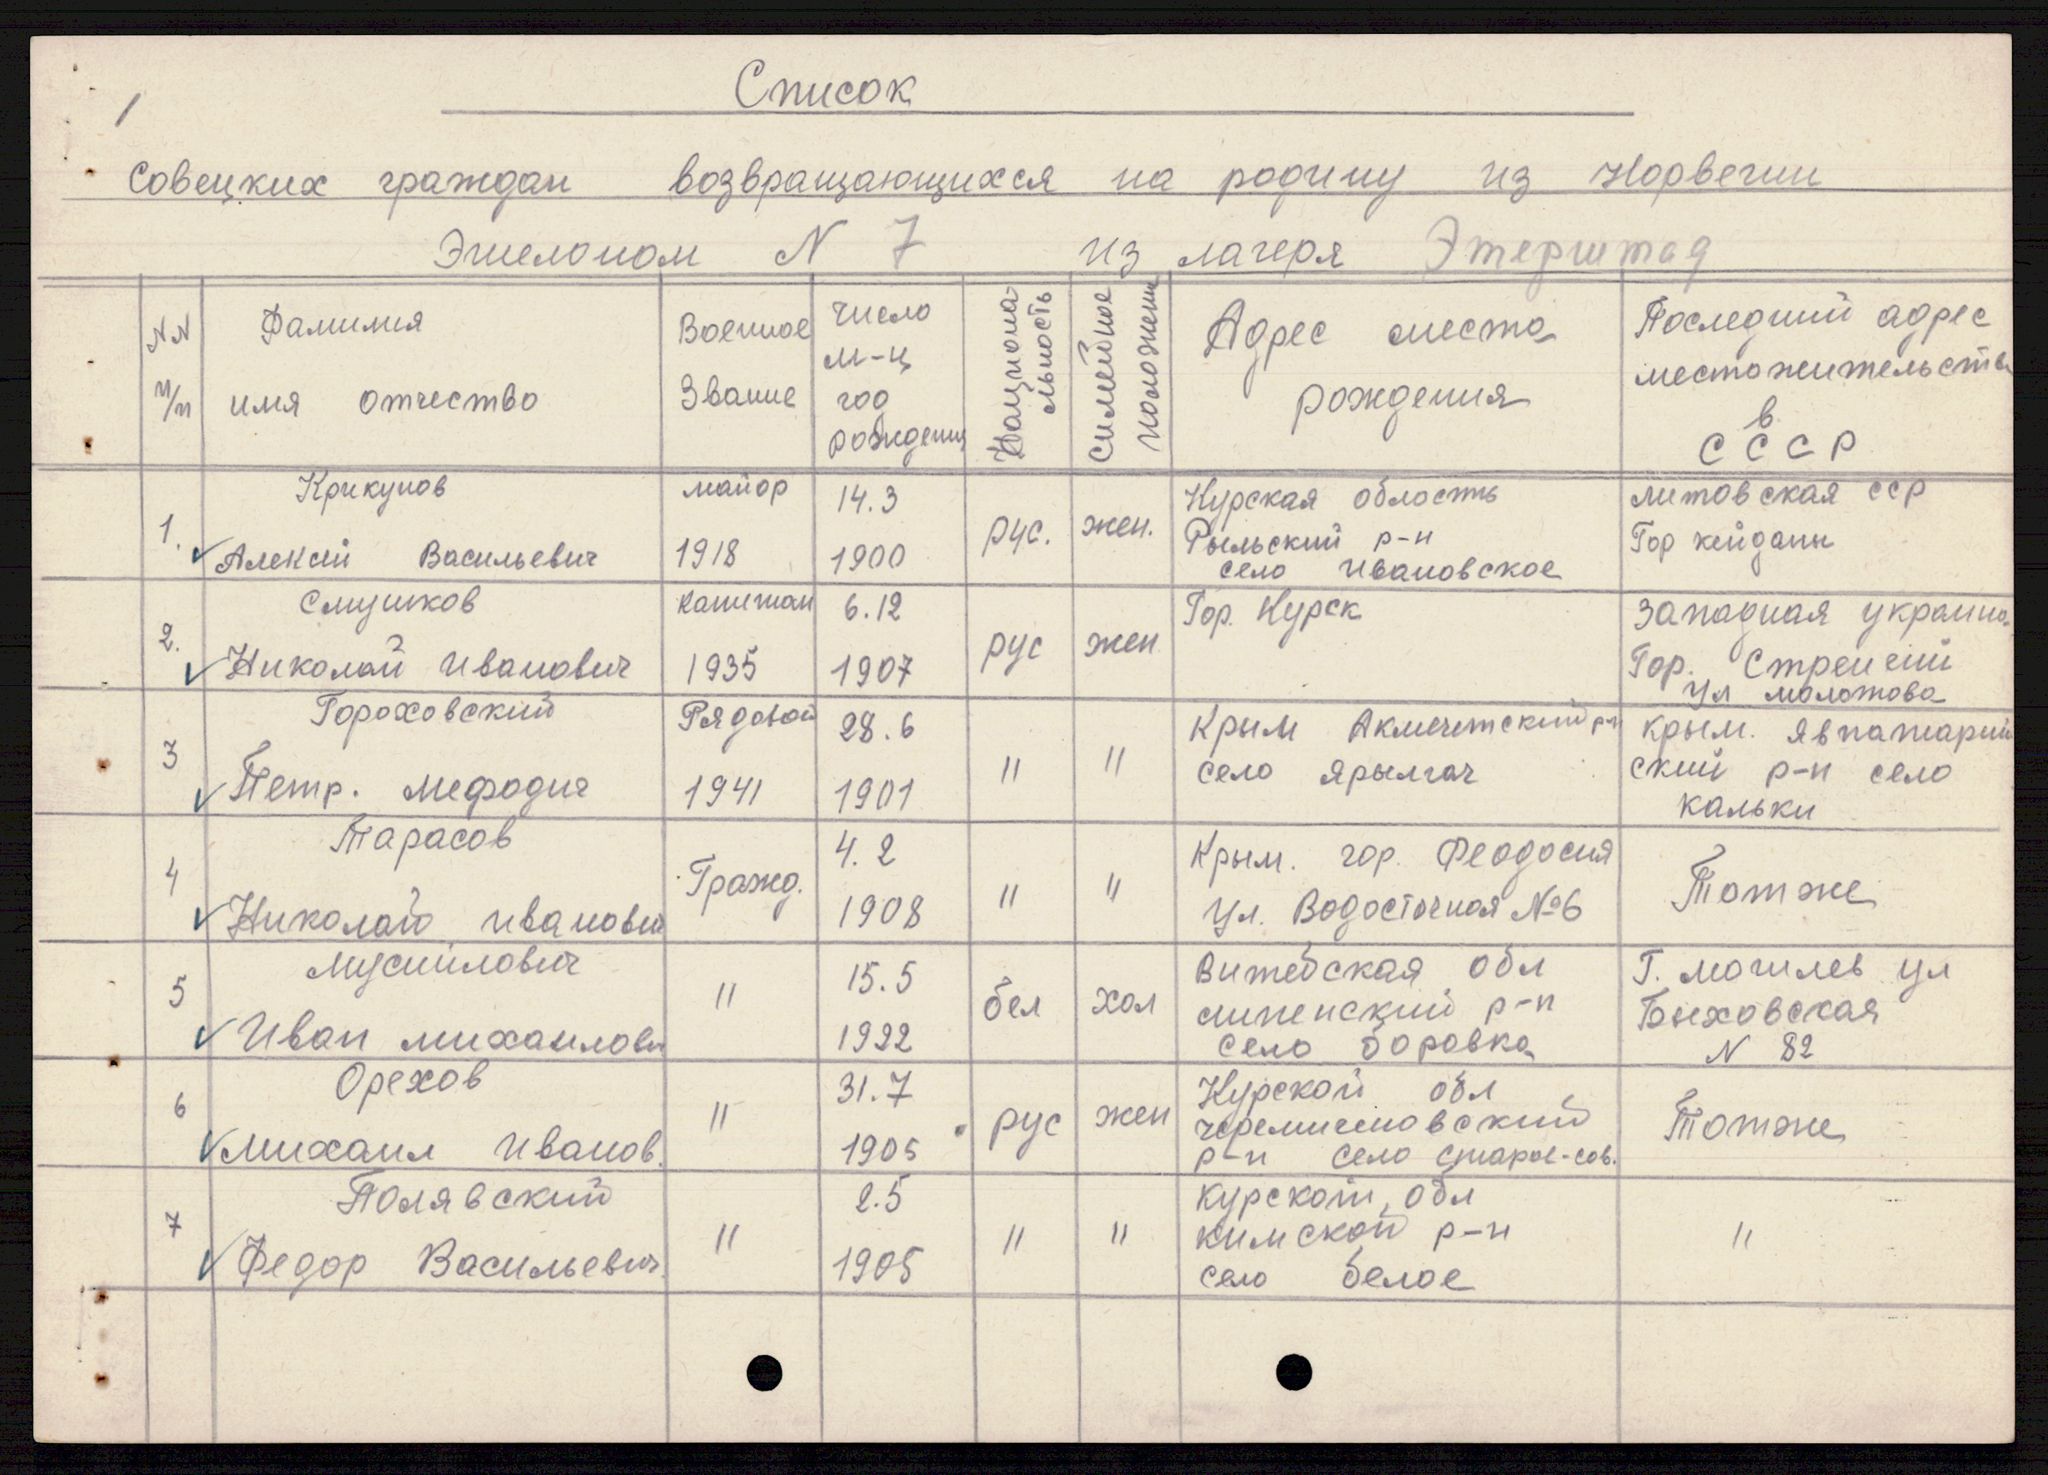 1
Список
Совецких граждан возвращающихся на родину из Норвегии
Эшелоном N 7 из лагеря Этерштад
NN п/п
Фамилия имя отчество
Военное Звание
Число м-ц год рождения
Национальность
Симейное положении
Адрес места рождения
Последний адрес местожительства в СССР
1.
Крикунов
Алексей Васильевич
майор
1918
14.3
1900
рус.
жен.
Курская область
Рыльский р-н
село Ивановское
Литовская сср
Гор кейданы
2.
Слушков
Николай Иванович
Капитан
1935
6.12
1907
рус
жен
Гор. Курск
Западная украина
Гор.
ул молотова
3
Гороховский
Петр. Мефодич
Рядовой
1941
28.6
1901
"
"
Крым Акмечетский р-н
село ярылгач
крым. явпатарий
ский р-н село
кальки
4
Тарасов
Николай Иванович
Гражд.
4.2
1908
"
"
Крым. гор. Феодосия
ул. Водосточная №6
Тотже
5
Мусийлович
Иван михаилович
"
15.5
1922
бел
хол
Витебская обл
р-н
село боровка
Г. могилев ул
Быховская
N 82
6
Орехов
Михаил Иванов.
"
31.7
1905
рус
жен
Курской обл
черемисиновский
р-н село старое-сов.
Тотже
7
Полявский
Федор Васильевич.
"
2.5
1905
"
"
курской, обл
кимской р-н
село белое
"